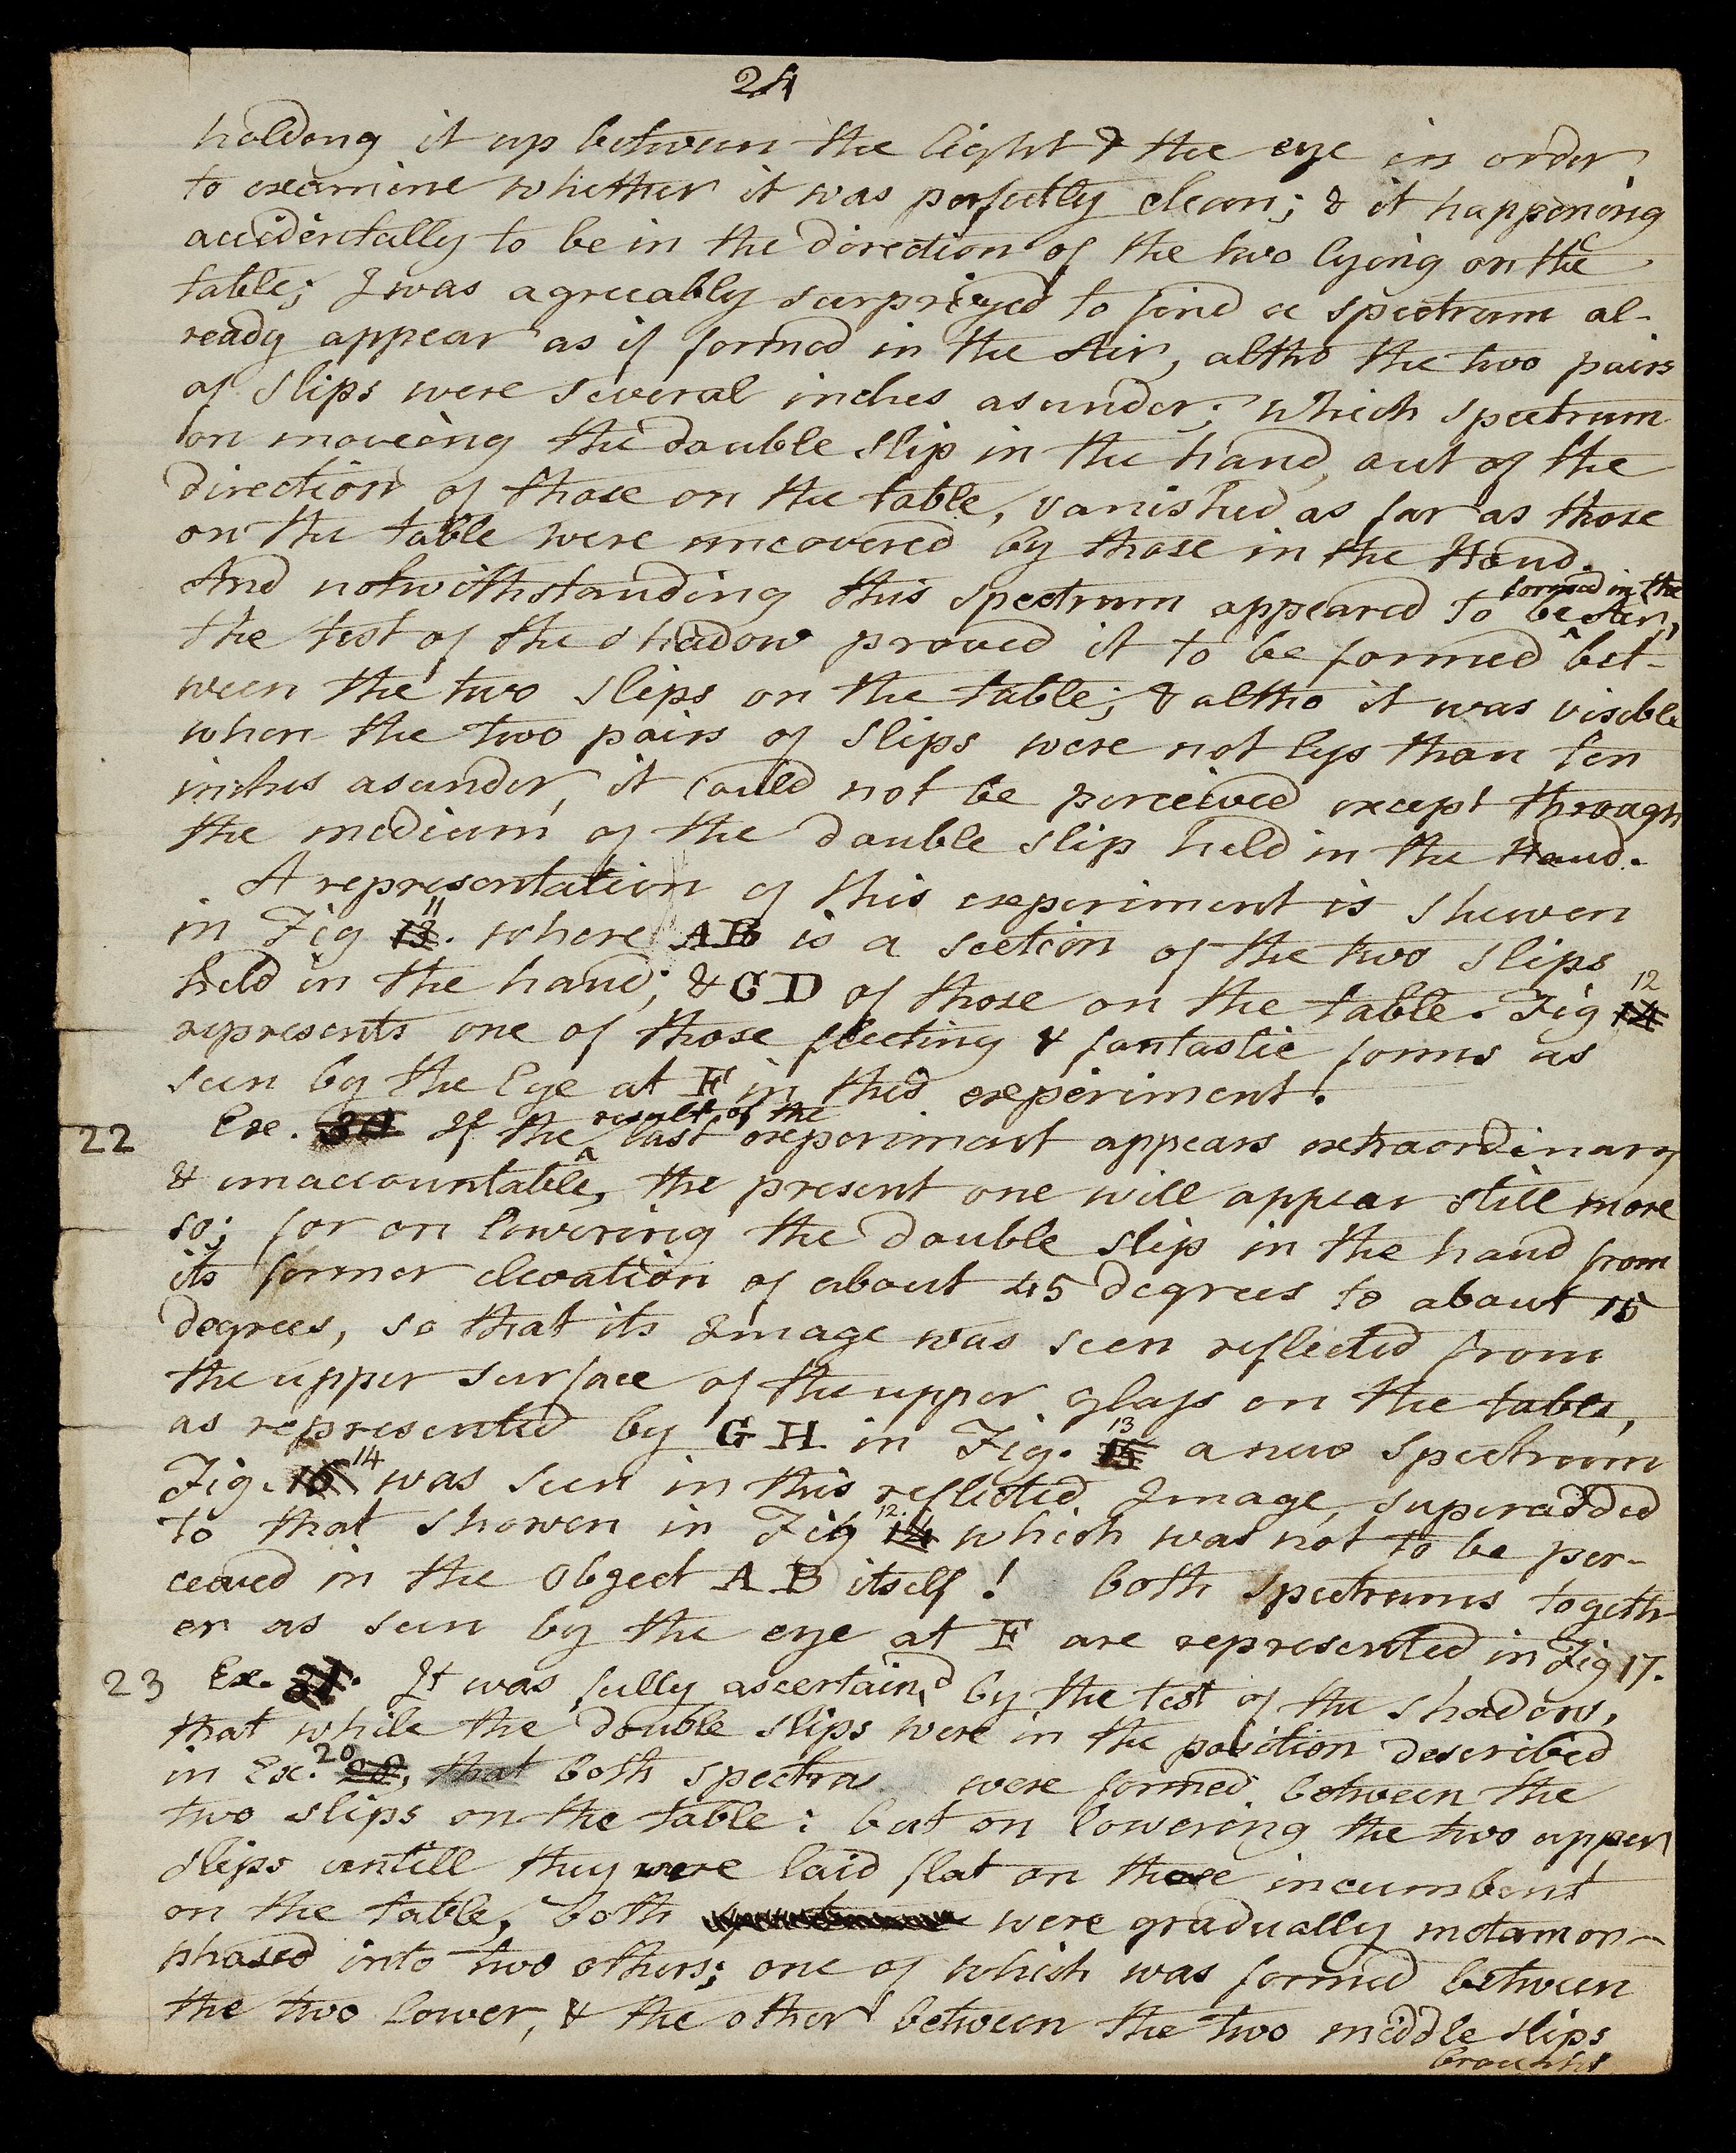 24
holding it up between the light & the eye in order
to examine whether it was perfectly clean; & it happening
accidentally to be in the direction of the two lying on the
table; I was agreeably surprized to find a spectrum al-
ready appear as if formed in the Air, altho the two pairs
of slips were several inches asunder; which spectrum
on moveing the double slip in the hand, out of the
direction of those on the table, vanished as far as those
on the table were uncovered by those in the Hand.
And notwithstanding this spectrum appeared to be formed in the Air,
the test of the shadow proved it to be formed bet-
ween the two slips on the table; & altho it was visible
when the two pairs of slips were not less than ten
inches asunder, it could not be perceived except through
the medium of the double slip held in the Hand.
A representation of this experiment is shewen
in Fig 13. 11 where AB is a section of the two slips
held in the hand; & CD of those on the table. Fig 14 12
represents one of those fleeting & fantastic forms as
seen by the Eye at F in this experiment.
22 Exe. If the result of the last experiment appears extraordinary
& unaccountable, the present one will appear still more
so; for on lowering the double slip in the hand from
its former elevation of about 45 degrees to about 15
degrees, so that its Image was seen reflected from
the upper surface of the upper glass on the table,
as represented by GH in Fig. 15 13 a new spectrum
Fig. 16 14 was seen in this reflected Image, superadded
to that showen in Fig 14 12. which was not to be per-
ceived in the Object AB itself! both spectrums togeth-
er as seen by the eye at F are represented in Fig 17.
23 Ex. 31. It was fully ascertaind by the test of the shadow,
that while the double slips were in the position described
in Ex. 20 that both spectras were formed between the
two slips on the table: but on lowering the two upper
slips untill they were laid flat on those incumbent
on the table, both were gradually metamor-
phased into two others; one of which was formed between
the two lower, & the other between the two middle slips